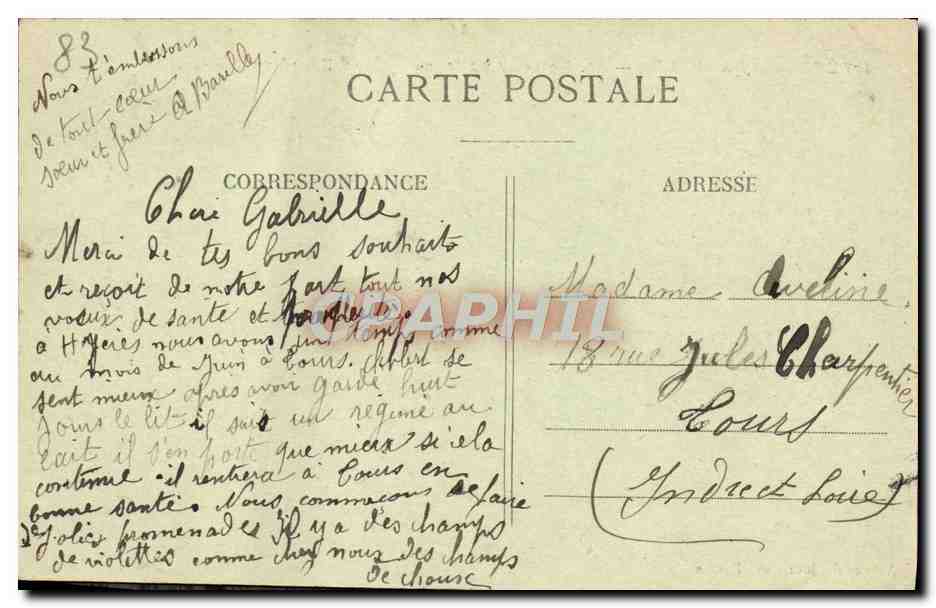 83
Nous t'embrassons
de tout cœur
sœur et frère A Barilley
CARTE POSTALE
CORRESPONDANCE
ADRESSE
Cheri Gabrielle
Merci de tes bons souhaits
et reçoit de notre part tout nos
vœux de santé et
à Hyères nous avons un temps comme
au mois de Juin à Tours. Albert se
sent mieux apres avoir gardé huit
jours le lit il suis un regime au
lait il s'en porte que mieux si cela
continue il rentrera à Tours en
bonne santé. Nous commeçons de faire
de jolies promenades Il y a des champs
de violettes comme chez nous des champs
de choux
Madame Aveline
18 rue Jules Charpentier
Tours
(Indre et Loire)
CPAPHIL